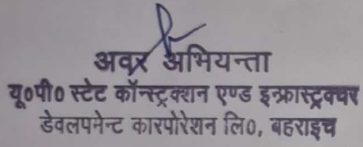 अवर अभियन्ता
यू०पी० स्टेट कॉन्स्ट्रक्शन एण्ड इन्फ्रास्ट्रक्चर
डेवलपमेन्ट कारपोरेशन लि०, बहराइच